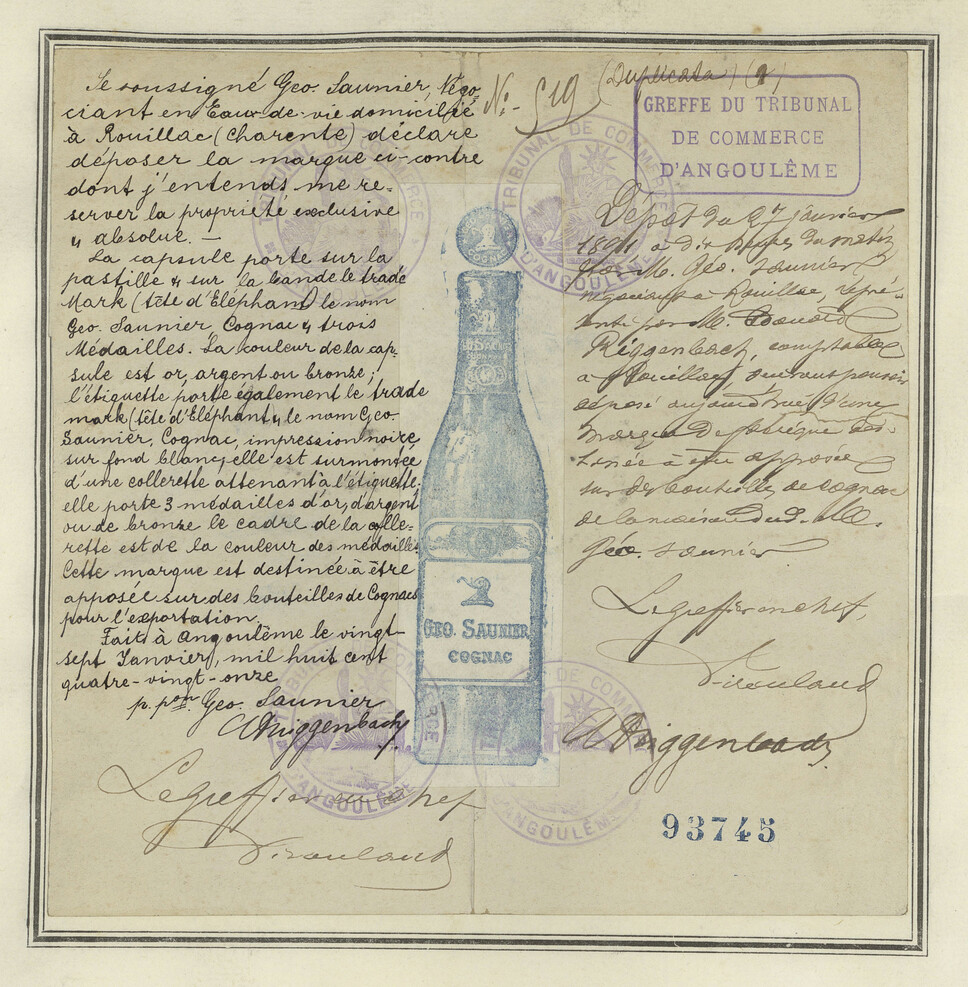 Je soussigné Geo. Saunier, Négo-
ciant en Eaux-de-vie domicilié
à Rouillac (Charente) déclare
déposer la marque ci-contre
dont j'entends me re-
server la propriété exclusive
& absolue. —
La capsule porte sur la
pastille & sur la bande le trade
Mark (tête d'Eléphant) le nom
Geo. Saunier, Cognac & trois
Médailles. La couleur de la cap-
sule est or, argent ou bronze;
l'étiquette porte également le trade
mark (tête d'Eléphant & le nom Geo.
Saunier, Cognac, impression noire
sur fond blanc, elle est surmontée
d'une collerette attenant à l'étiquette.
elle porte 3 médailles d'or, d'argent
ou de bronze le cadre de la colle-
rette est de la couleur des médailles
Cette marque est destinée à être
apposée sur des bouteilles de Cognac
pour l'exportation.
Fait à Angoulême le vingt-
sept Janvier, mil huit cent
quatre-vingt-onze
p. pon. Geo. Saunier
Riggenbach
Le greffier en chef
N° 519 (Duplicata)
GREFFE DU TRIBUNAL
DE COMMERCE
D'ANGOULÊME
Dépôt du 27 janvier
1891 à dix heures du matin
par M. Géo. Saunier,
négociant à Rouillac, repré-
senté par M. Edouard
Riggenbach, comptable
à Rouillac, suivant pouvoir
déposé aujourd'hui d'une
marque de fabrique des-
tinée à être apposée
sur des bouteilles de cognac
de la maison dud. M.
Géo. Saunier
Le greffier en chef,
Riggenbach
93745
COGNAC
GEO. SAUNIER
COGNAC
TRIBUNAL DE COMMERCE
D'ANGOULÊME
TRIBUNAL DE COMMERCE
D'ANGOULÊME
TRIBUNAL DE COMMERCE
D'ANGOULÊME
TRIBUNAL DE COMMERCE
D'ANGOULÊME